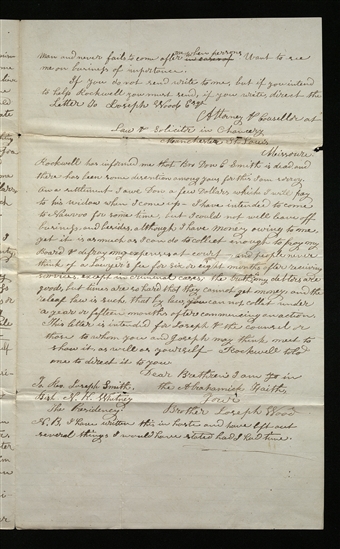 man and never fails to come after me when persons want to see
me on business of importance.
If you do not send write to me, but if you intend
to help Rockwell you must send, if you write, direct the
Letter to Joseph Wood Esqr.
Attorney & Counsellor at
Law & Solicitor in Chancery
St Louis
Missouri
Rockwell has informed me that Bro Don C Smith is dead and
there has been some desertion among you for this I am sorry
I owe Don a few Dollars which I will pay
to his widow when I come up— I have intended to come
to Nauvoo for some time, but I could not well leave off
business, and besides, although I have money owing to me,
yet it is as much as I can do to collect enough to pay my
board & defray my expenses at court— and people never
think of a Lawyer's fee for six, or eight months after receiving
services except in criminal cases, the most of my debtors are
good, but times are so hard that they cannot get money and the
law is such that by law, you can not collect under
a year or fifteen months after commencing an action.
This letter is intended for Joseph & the council or
those to whom you and Joseph may think meet to
show it, as well as yourself— Rockwell told
me to direct it to you
Dear Brethren I am yo in
To Rev. Joseph Smith, the Abrahamick Faith,
Bish. N. K. Whitney
The Presidency Brother Joseph Wood
N.B. I have written this in haste and have left out
several things I would have stated had I had time.